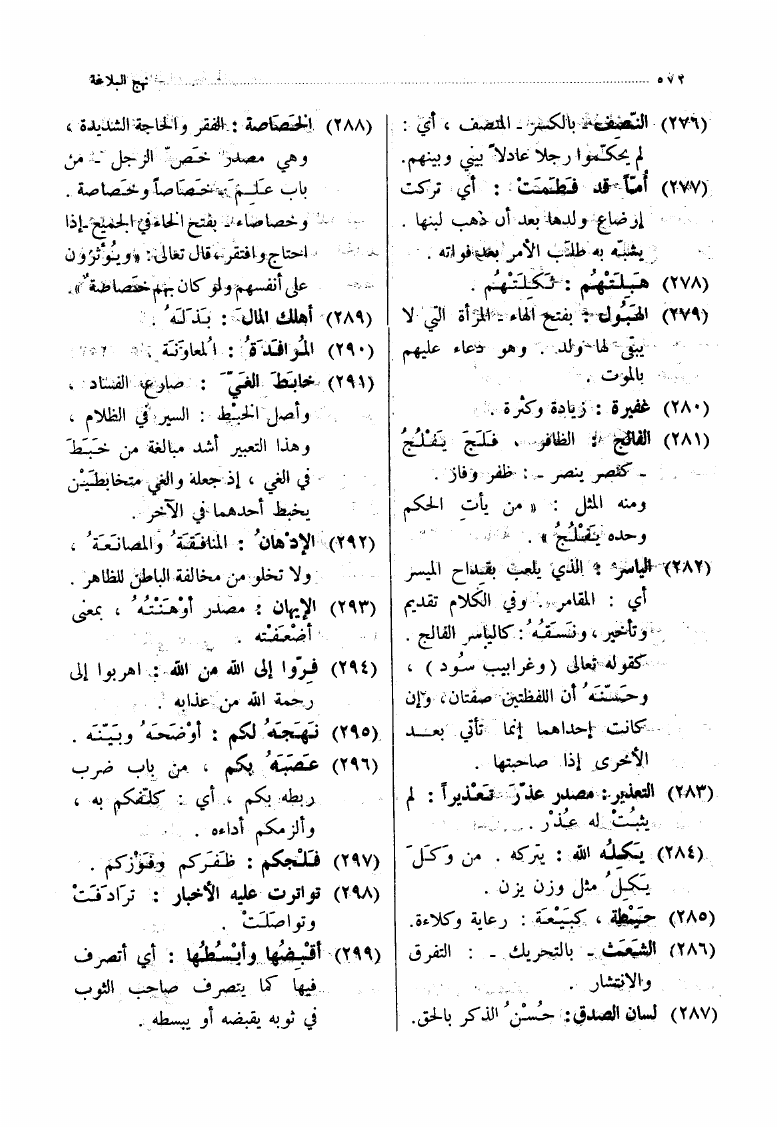 ٥٧٢ نهج البلاغة
(٢٧٦) النَّصِف - بالكسر - المنصف ، أي :
لم يحكّموا رجلا عادلاً بيني وبينهم.
(٢٧٧) أُمّاً قد فَطَمَتْ : أي تركت
إرضاع ولدها بعد أن ذهب لبنها .
يشبّه به طلّاب الأمر بعد فواته .
(٢٧٨) هَبِلَتْهُم : ثَكِلَتْهُم .
(٢٧٩) الهَبُول : بفتح الهاء - المرأة التي لا
يبقى لها ولد . وهو دعاء عليهم
بالموت .
(٢٨٠) غفيرة : زيادة وكثرة .
(٢٨١) الفالج : الظافر ، فَلَجَ يَفْلُجُ
- كنصر ينصر - : ظفر وفاز .
ومنه المثل : « من يأتِ الحكم
وحده يَفْلُجُ » .
(٢٨٢) الياسر : الذي يلعب بقِداح الميسر
أي : المقامر . وفي الكلام تقديم
وتأخير ، ونَسَقُهُ : كالياسر الفالج .
كقوله تعالى ( وغرابيب سُود ) ،
وحَسَّنَهُ أن اللفظتين صفتان، وإن
كانت إحداهما إنما تأتي بعد
الأخرى إذا صاحبتها .
(٢٨٣) التعذير: مصدر عذّرَ تَعْذيراً : لم
يثبُتْ له عُذْر .
(٢٨٤) يَكِلْهُ الله : يتركه . من وَكَلَ
يَكِلُ مثل وزن يزن .
(٢٨٥) حَيْطة ، كبَيْعَة : رعاية وكلاءة.
(٢٨٦) الشَّعَث - بالتحريك - : التفرق
والانتشار .
(٢٨٧) لسان الصدق: حُسْنُ الذكر بالحق.
(٢٨٨) الخَصَاصة : الفقر والحاجة الشديدة ،
وهي مصدر خَصّ الرجل - من
باب عَلِمَ - خَصَاصاً وخَصاصة .
وخصاصاء - بفتح الخاء في الجميع - إذا
احتاج وافتقر، قال تعالى: «ويُؤثرُون
على أنفسهم ولو كان بهم خَصَاصة».
(٢٨٩) أهلك المال : بَذَلَهُ .
(٢٩٠) المُرافَدَةُ : المعاوَنة .
(٢٩١) خابَطَ الغَيَّ : صارع الفساد ،
وأصل الخَبْط : السير في الظلام ،
وهذا التعبير أشد مبالغة من خَبَطَ
في الغي ، إذ جعله والغي متخابطَيْن
يخبط أحدهما في الآخر .
(٢٩٢) الإدْهانُ : المنافَقَةُ والمصانَعَةُ ،
ولا تخلو من مخالفة الباطن للظاهر .
(٢٩٣) الإيهان : مصدر أوْهَنْتُهُ ، بمعنى
أضْعَفْته .
(٢٩٤) فِرّوا إلى الله من الله : اهربوا إلى
رحمة الله من عذابه .
(٢٩٥) نَهَجَهُ لكم : أوْضَحَهُ وبَيّنَه .
(٢٩٦) عَصَبَهُ بكم ، من باب ضرب
ربطه بكم ، أي : كلّفكم به ،
وألزمكم أداءه .
(٢٩٧) فَلْجكم : ظَفَركم وفَوْزكم .
(٢٩٨) تواترت عليه الأخبار : تَرَادَفَتْ
وتواصلَتْ .
(٢٩٩) أقْبِضُها وأبْسُطُها : أي أتصرف
فيها كما يتصرف صاحب الثوب
في ثوبه يقبضه أو يبسطه .